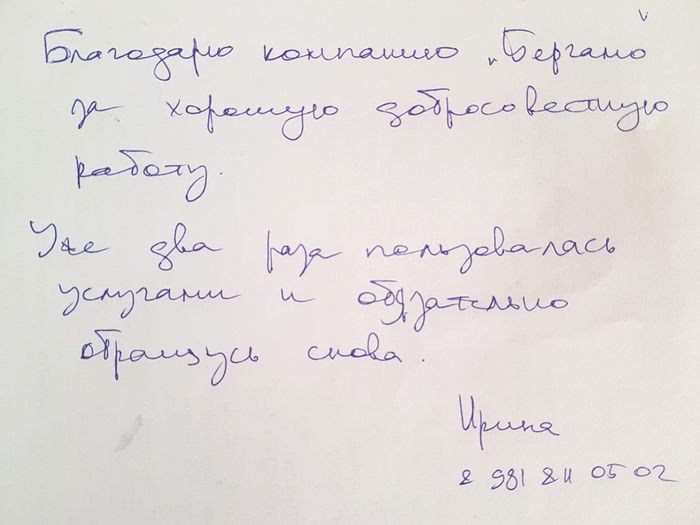 Благодарю компанию „Бергамо"
за хорошую добросовестную
работу.
Уже два раза пользовалась
услугами и обязательно
обращусь снова.
Ирина
8 981 811 05 02